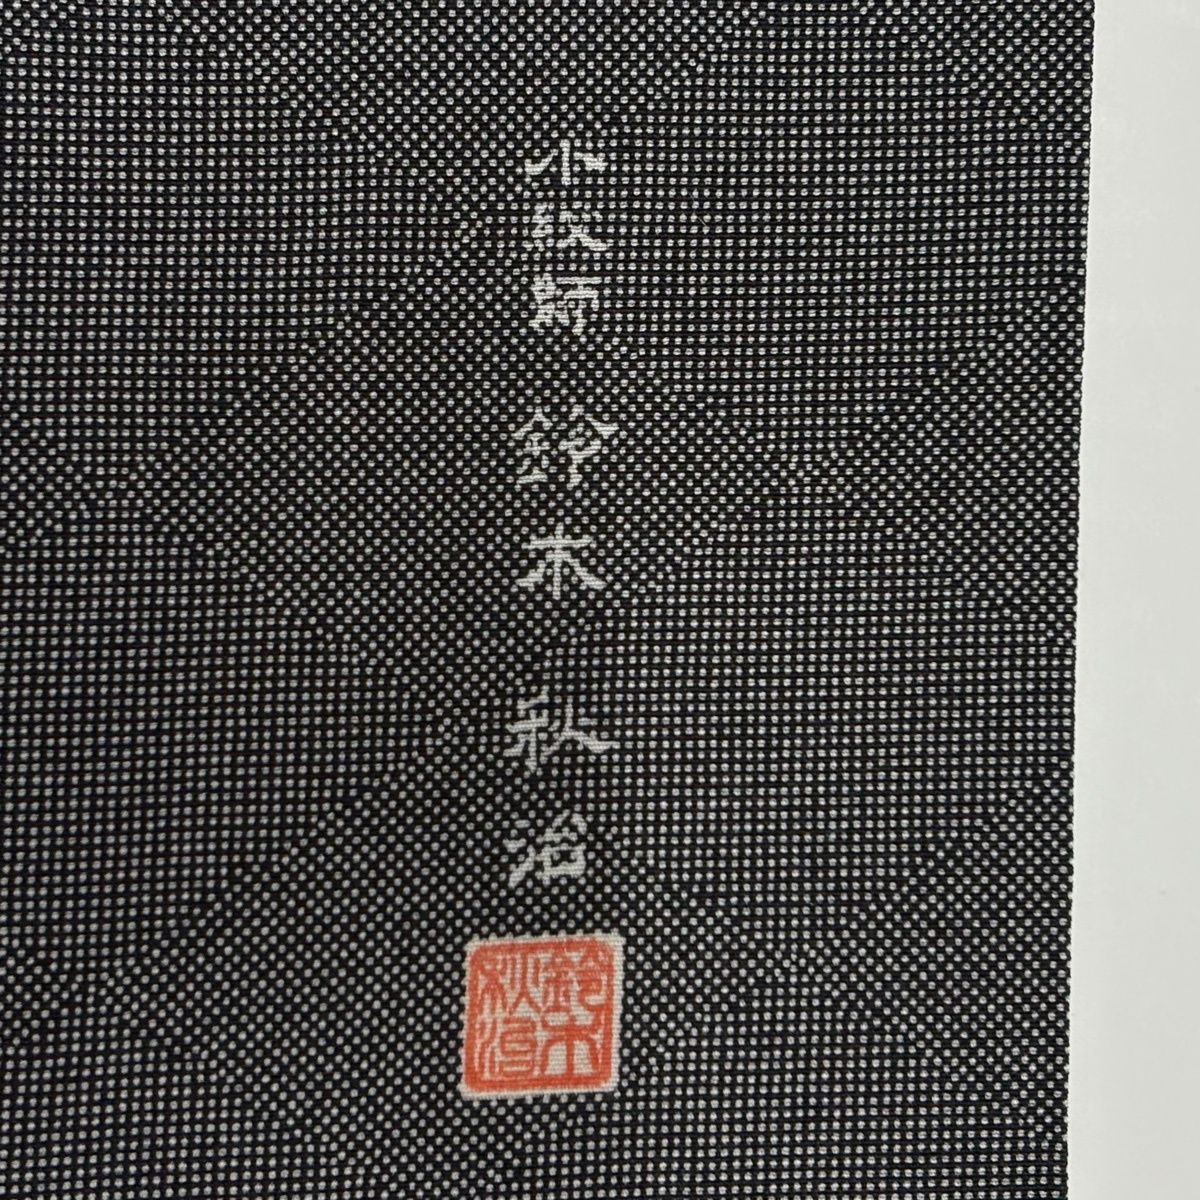 小紋師 鈴木秋治
鈴木
秋治